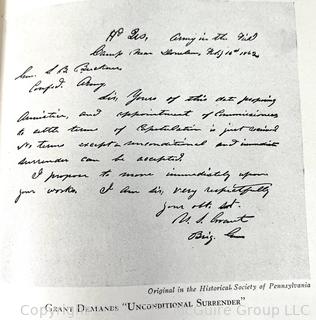 Hd Qrs, Army in the Fid
Camp Near Donelson, Feby 16th 1862
Gen. S. B. Buckner,
Confed. Army,
Sir, Yours of this date proposing
Armistice, and appointment of Commissioners
to settle terms of Capitulation is just received
No terms except unconditional and immediate
surrender can be accepted.
I propose to move immediately upon
your works. I am sir, very respectfully
your obt. svt.
U. S. Grant
Brig. Gen
Original in the Historical Society of Pennsylvania
GRANT DEMANDS "UNCONDITIONAL SURRENDER"
Copyright McGuire Group, Inc